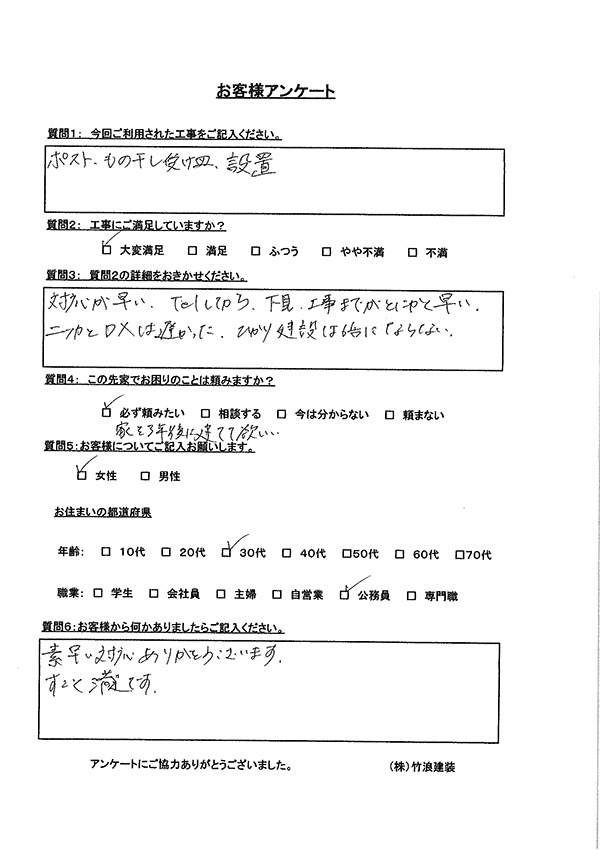 お客様アンケート
質問1： 今回ご利用された工事をご記入ください。
ポスト、もの干し受け皿、設置
質問2： 工事にご満足していますか？
☑ 大変満足 □ 満足 □ ふつう □ やや不満 □ 不満
質問3： 質問2の詳細をおきかせください。
対応が早い、Telしてから、下見、工事までがとにかく早い。
は遅かった、 建設は
質問4： この先家でお困りのことは頼みますか？
☑ 必ず頼みたい □ 相談する □ 今は分からない □ 頼まない
家を3年後に建てて欲しい…
質問5：お客様についてご記入お願いします。
☑ 女性 □ 男性
お住まいの都道府県
年齢： □ 10代 □ 20代 ☑ 30代 □ 40代 □50代 □ 60代 □70代
職業：□ 学生 □ 会社員 □ 主婦 □ 自営業 ☑ 公務員 □ 専門職
質問6：お客様から何かありましたらご記入ください。
素早い対応ありがとうございます。
すごく満足です。
アンケートにご協力ありがとうございました。 （株）竹浪建装